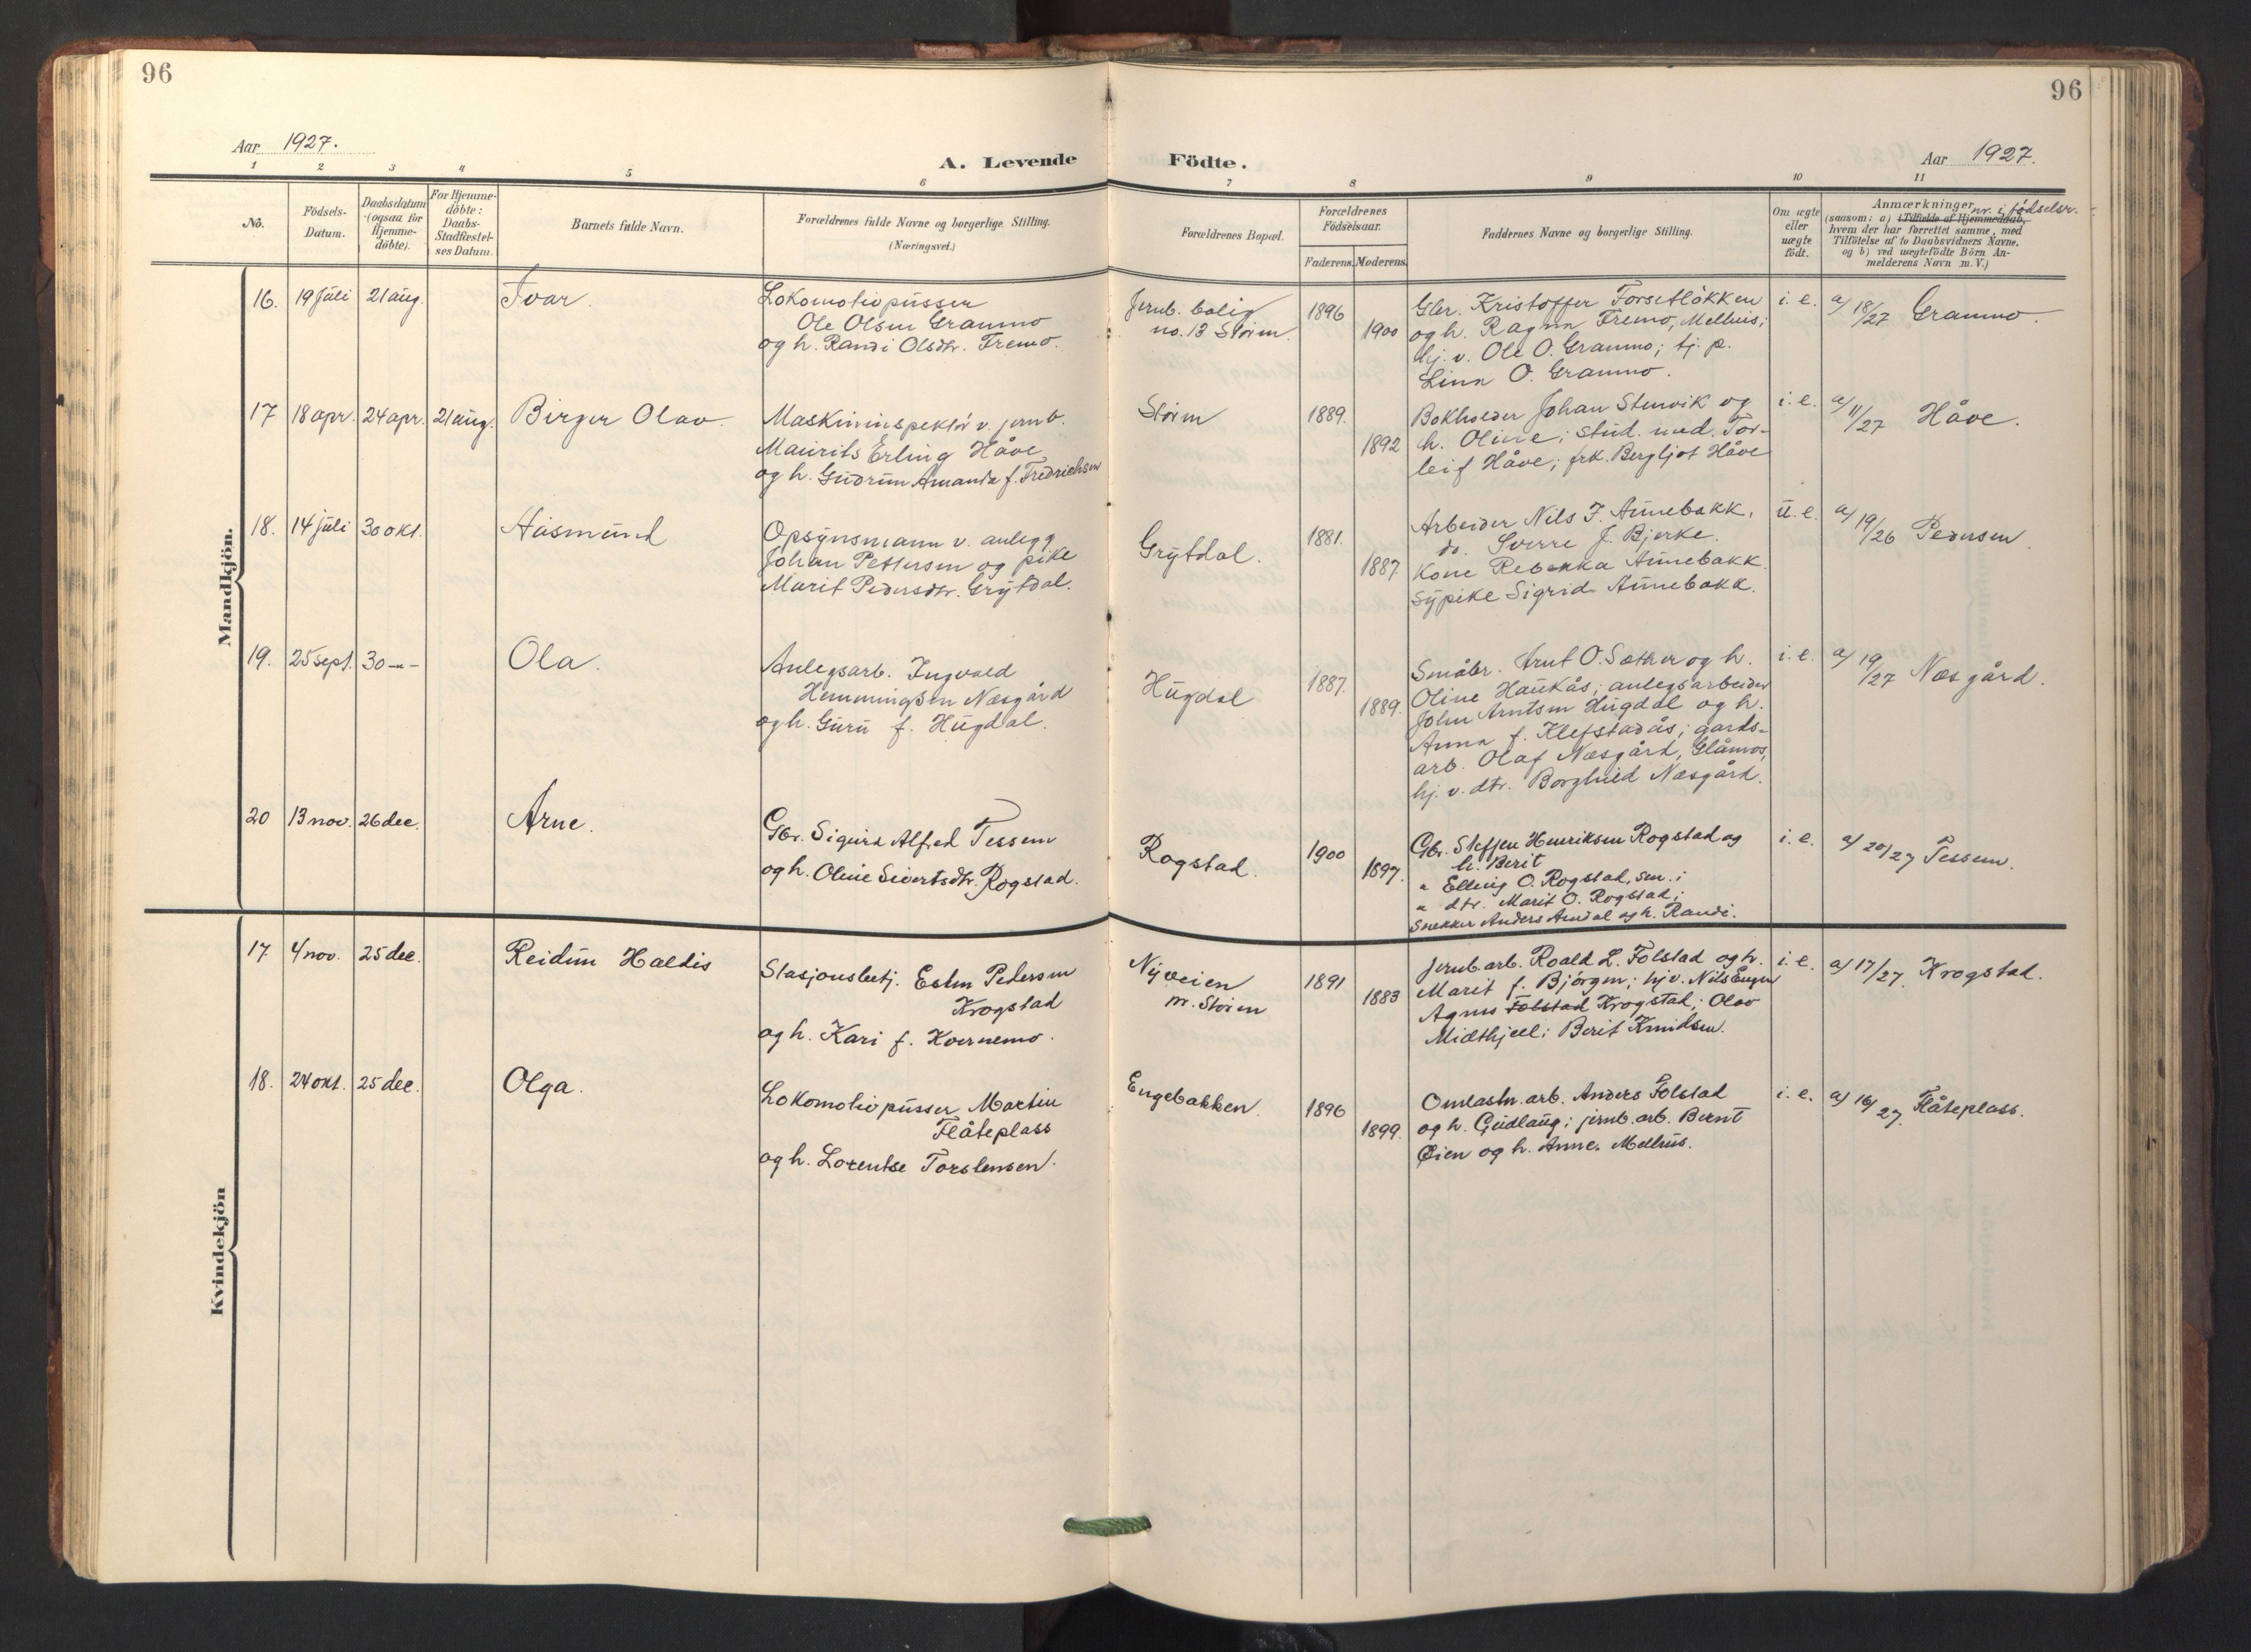 96
96
Aar 1927.
A. Levende Födte.
Aar 1927.
1 2 3 4 5 6 7 8 9 10 11
No.
Födsels-
Datum.
Daabsdatum
(ogsaa for
Hjemme-
döbte).
For Hjemme-
döbte:
Daabs-
Stadfæstel-
ses Datum.
Barnets fulde Navn.
Forældrenes fulde Navne og borgerlige Stilling.
(Næringsvei.)
Forældrenes Bopæl.
Forældrenes
Födselsaar.
Faderens. Moderens.
Faddernes Navne og borgerlige Stilling.
Om ægte
eller
uægte
födt.
Anmærkninger nr. i fødselsr.
(saasom: a) i Tilfælde af Hjemmedaab,
hvem der har forrettet samme, med
Tilföielse af to Daabsvidners Navne,
og b) ved uægtefödte Börn An-
melderens Navn m. V.)
Mandkjön.
16. 19 juli 21 aug. Ivar.
Lokomotivpusser
Ole Olsen Grammo
og h. Randi Olsdtr. Fremo.
Jernb. bolig
no. 13 Støren
1896
1900
Gbr. Kristoffer Forsetløkken
og h. Ragna Fremo, Melhus;
hj. v. Ole O. Grammo; tj. p.
Lina O. Grammo.
i. e. a/ 18/27 Grammo.
17 18 apr. 24 apr. 21 aug. Birger Olav.
Maskininspektør v. jernb.
Maurits Erling Håve
og h. Gudrun Amanda f. Fredrichsen
Støren
1889.
1892
Bokholder Johan Stenvik og
h. Oline; stud. med. Tor-
leif Håve; frk. Bergljot Håve
i. e. a/ 11/27 Håve.
18. 14 juli 30 okt. Åsmund
Opsynsmann v. anlegg
Johan Pettersen og pike
Marit Pedersdtr. Grytdal.
Grytdal.
1881.
1887.
Arbeider Nils J. Aunebakk.
do. Sverre J. Bjerke.
Kone Rebekka Aunebakk.
Sypike Sigrid Aunebakk.
u. e. a/ 19/26 Pedersen
19. 25 sept. 30 -"- Ola.
Anlegsarb. Ingvald
Hemmingsen Næsgård
og h. Guru f. Hugdal.
Hugdal
1887.
1889.
Småbr. Arnt O. Sæther og h.
Oline Haukås; anlegsarbeider
John Arntsen Hugdal og h.
Anna f. Klefstadås; gards-
arb. Olaf Næsgård, Glåmos,
hj. v. dtr. Borghild Næsgård.
i. e. a/ 19/27 Næsgård.
20 13 nov. 26 dec. Arne.
Gbr. Sigurd Alfred Tessem
og h. Oline Sivertsdtr. Rogstad.
Rogstad.
1900
1897.
Gbr. Steffen Henriksen Rogstad og
h. Berit
" Elling O. Rogstad, sen.;
" dtr. Marit O. Rogstad;
Snekker Anders Amdal og h. Randi.
i. e. a/ 20/27 Tessem.
Kvindekjön
17 4 nov. 25 dec. Reidun Haldis
Stasjonsbetj. Esten Pedersen
Krogstad
og h. Kari f. Kvernmo.
Nyveien
pr. Støren
1891
1883
Jernb. arb. Roald L. Folstad og h.
Marit f. Bjørgen; hj v. Nils Eugen
Agnes Folstad Krogstad; Olav
Midthjell; Berit Knudsen.
i. e. a/ 17/27. Krogstad.
18. 24 okt. 25 dec. Olga.
Lokomotivpusser Martin
Flåteplass
og h. Lorentse Torstensen.
Engebakken.
1896
1899.
Omlastn. arb. Anders Folstad
og h. Gudlaug; jernb. arb. Bernt
Øien og h. Anne. Melhus.
i. e. a/ 16/27. Flåteplass.